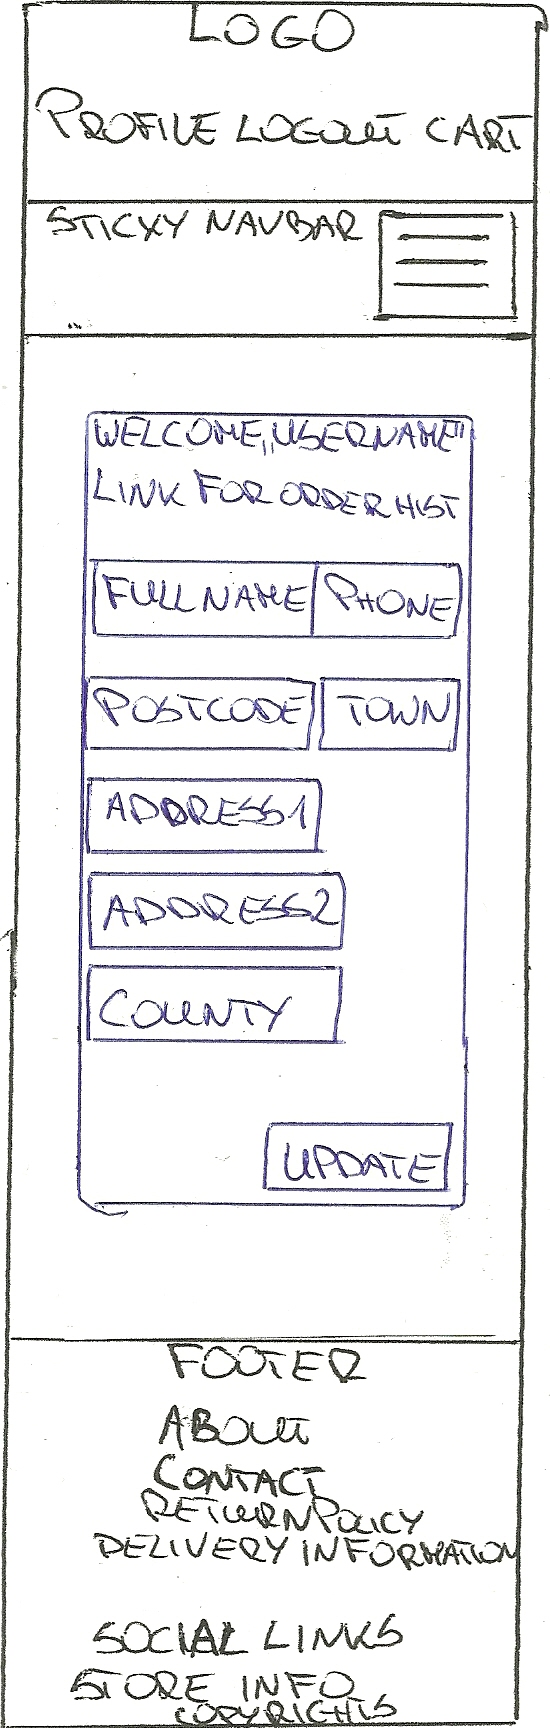 LOGO
PROFILE LOGOUT CART
STICKY NAVBAR
WELCOME „USERNAME"
LINK FOR ORDER HIST
FULL NAME PHONE
POSTCODE TOWN
ADDRESS1
ADDRESS2
COUNTY
UPDATE
FOOTER
ABOUT
CONTACT
RETURN POLICY
DELIVERY INFORMATION
SOCIAL LINKS
STORE INFO
COPYRIGHTS